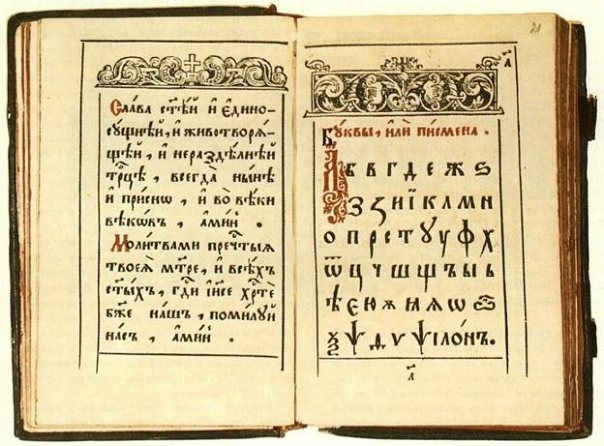 Сла́ва ст҃ѣ́й и҆ є҆дино-
сꙋ́щнѣй, и҆ животворѧ́-
щей, и҆ неразд́ѣлнѣй
трⷪ҇цѣ, всегда̀ ны́нѣ
и҆ при́снѡ, и҆ во вѣ́ки
вѣкѡ́въ, а҆ми́нь.
Моли́твами пречⷭ҇тыѧ
твоеѧ̀ мт҃ре, и҆ всѣ́хъ
ст҃ы́хъ, гдⷭ҇и і҆и҃се хрⷭ҇те́
бж҃е на́шъ, поми́лꙋй
на́съ, а҆ми́нь.
21
а҃
Бꙋ́квы, и҆лѝ писмена̀.
А Б В Г Д Е Ж Ѕ
З Ꙁ И Ї К Л М Н
О П Р С Т Ѹ Ꙋ Ф Х
Ѿ Ц Ч Ш Щ Ъ Ы Ь
Ѣ Є Ю Ѫ Ꙗ Ѧ Ѡ Ѽ
Ѯ Ѱ Ѳ Ѵ Ѱїло́нъ.
а҃